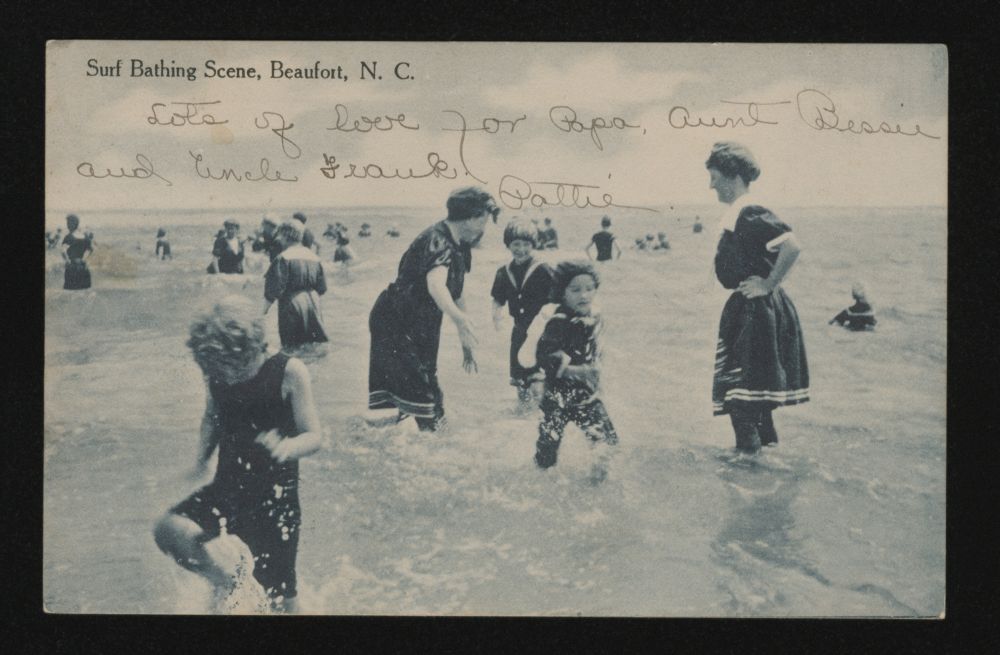 Surf Bathing Scene, Beaufort, N. C.
Lots of love for Papa, Aunt Bessie
and Uncle Frank.
Pattie